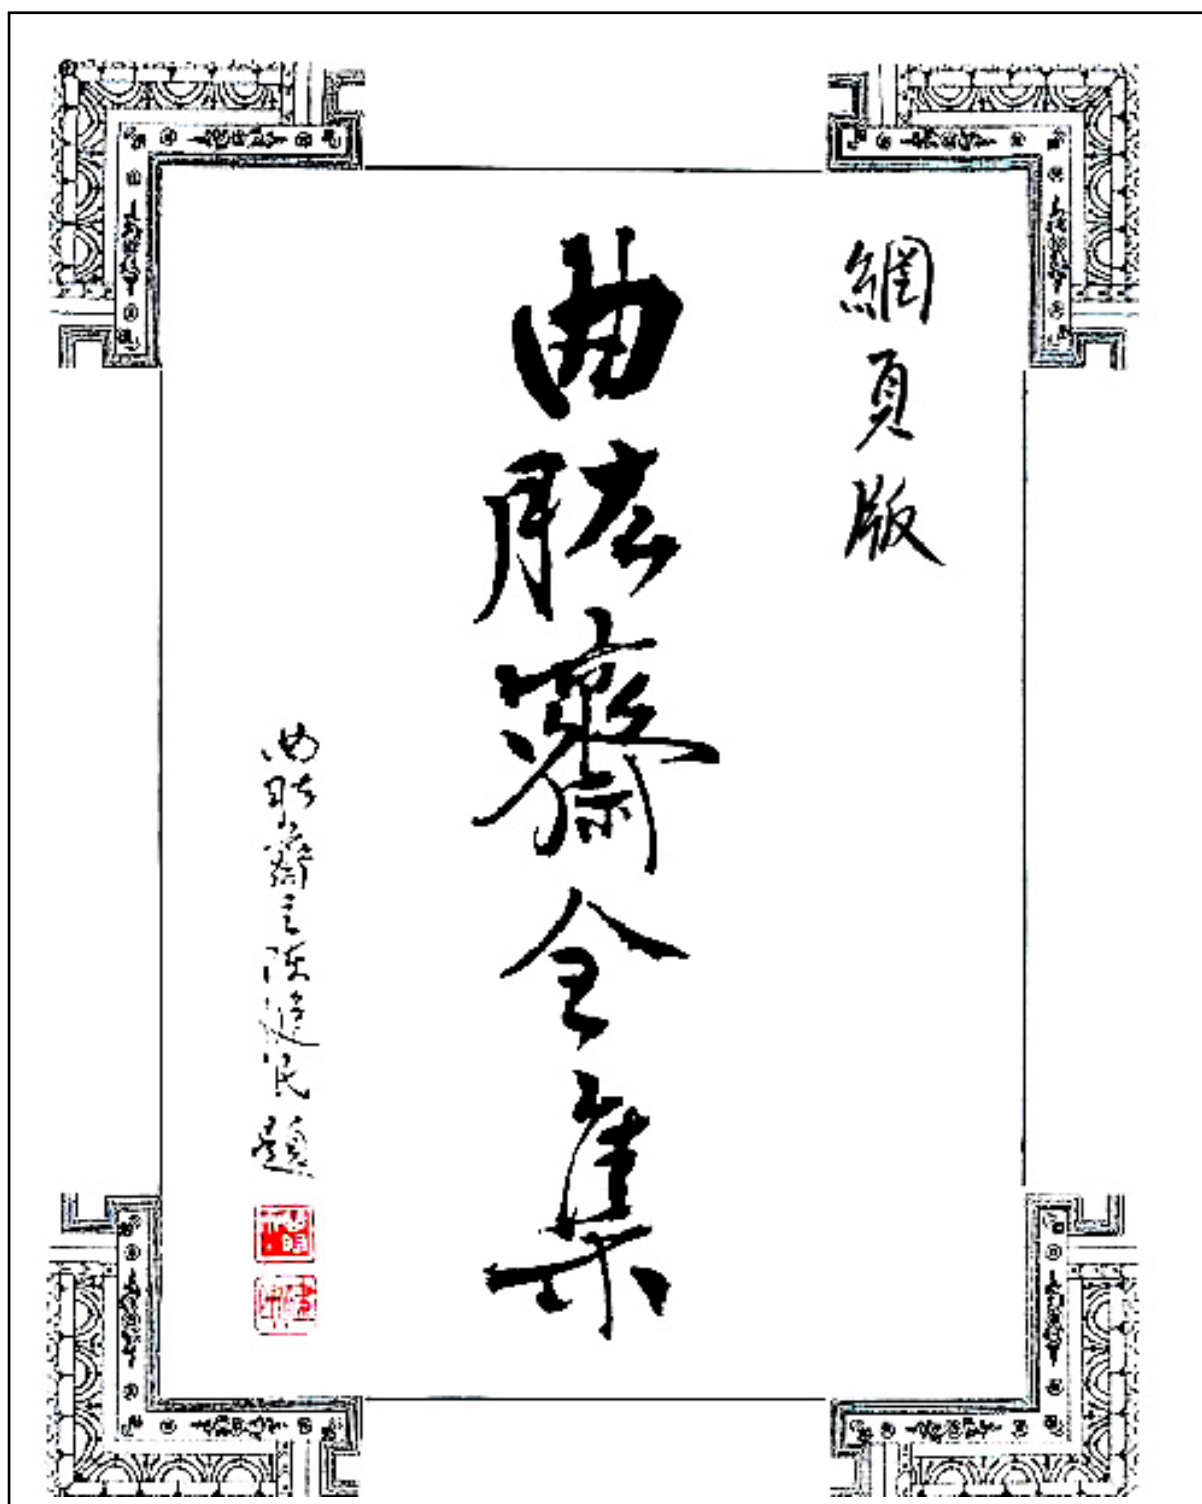 網頁版
曲肱齋全集
曲肱齋主陳健民題